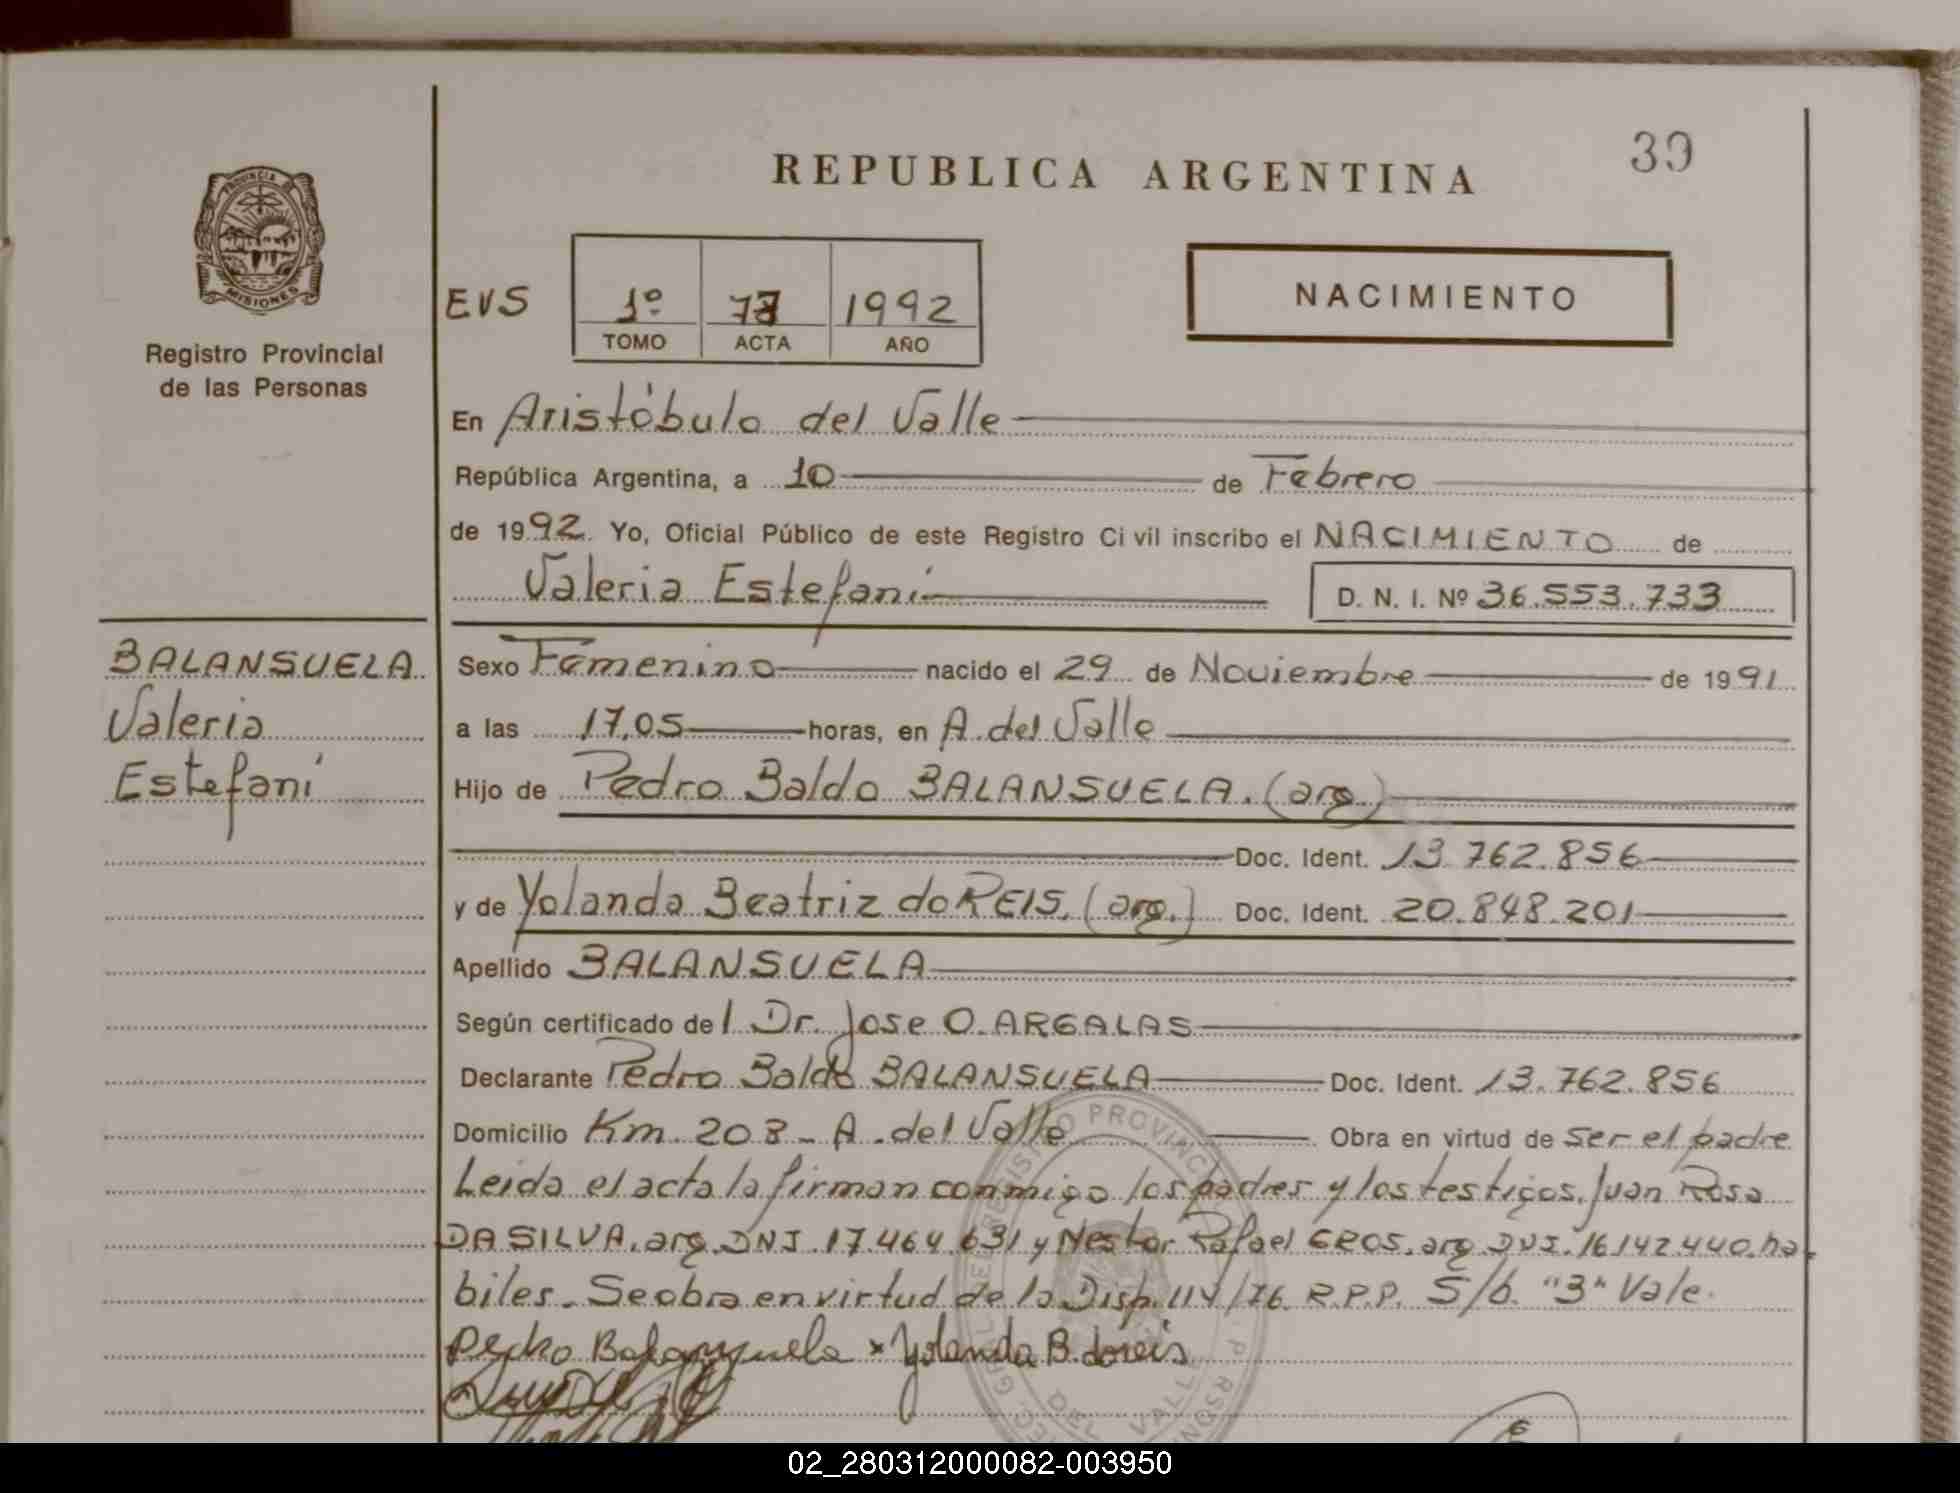 REPUBLICA ARGENTINA
39
PROVINCIA DE
MISIONES
Registro Provincial
de las Personas
EVS
1º 73 1992
TOMO ACTA AÑO
NACIMIENTO
En Aristóbulo del Valle
República Argentina, a 10 de Febrero
de 1992. Yo, Oficial Público de este Registro Civil inscribo el NACIMIENTO de
Valeria Estefaní
D. N. I. Nº 36.553.733
BALANSUELA
Valeria
Estefaní
Sexo Femenino nacido el 29 de Noviembre de 1991
a las 17,05 horas, en A. del Valle
Hijo de Pedro Baldo BALANSUELA. (arg.)
Doc. Ident. 13.762.856
y de Yolanda Beatriz do REIS. (arg.) Doc. Ident. 20.848.201
Apellido BALANSUELA
Según certificado del Dr. Jose O. ARGALAS
Declarante Pedro Baldo BALANSUELA Doc. Ident. 13.762.856
Domicilio Km 203 - A. del Valle Obra en virtud de ser el padre
Leida el acta la firman conmigo los padres y los testigos, Juan Rosa
DA SILVA, arg. DNI. 17.464.631 y Nestor Rafael EROS, arg. DNI. 16.142.440. ha
biles. Se obra en virtud de la Disp. 114/76 R.P.P. S/b. "3" Vale.
Pedro Balanzuela x Yolanda B. doreis
REGISTRO PROVINCIAL
DEL VALLE
02_280312000082-003950